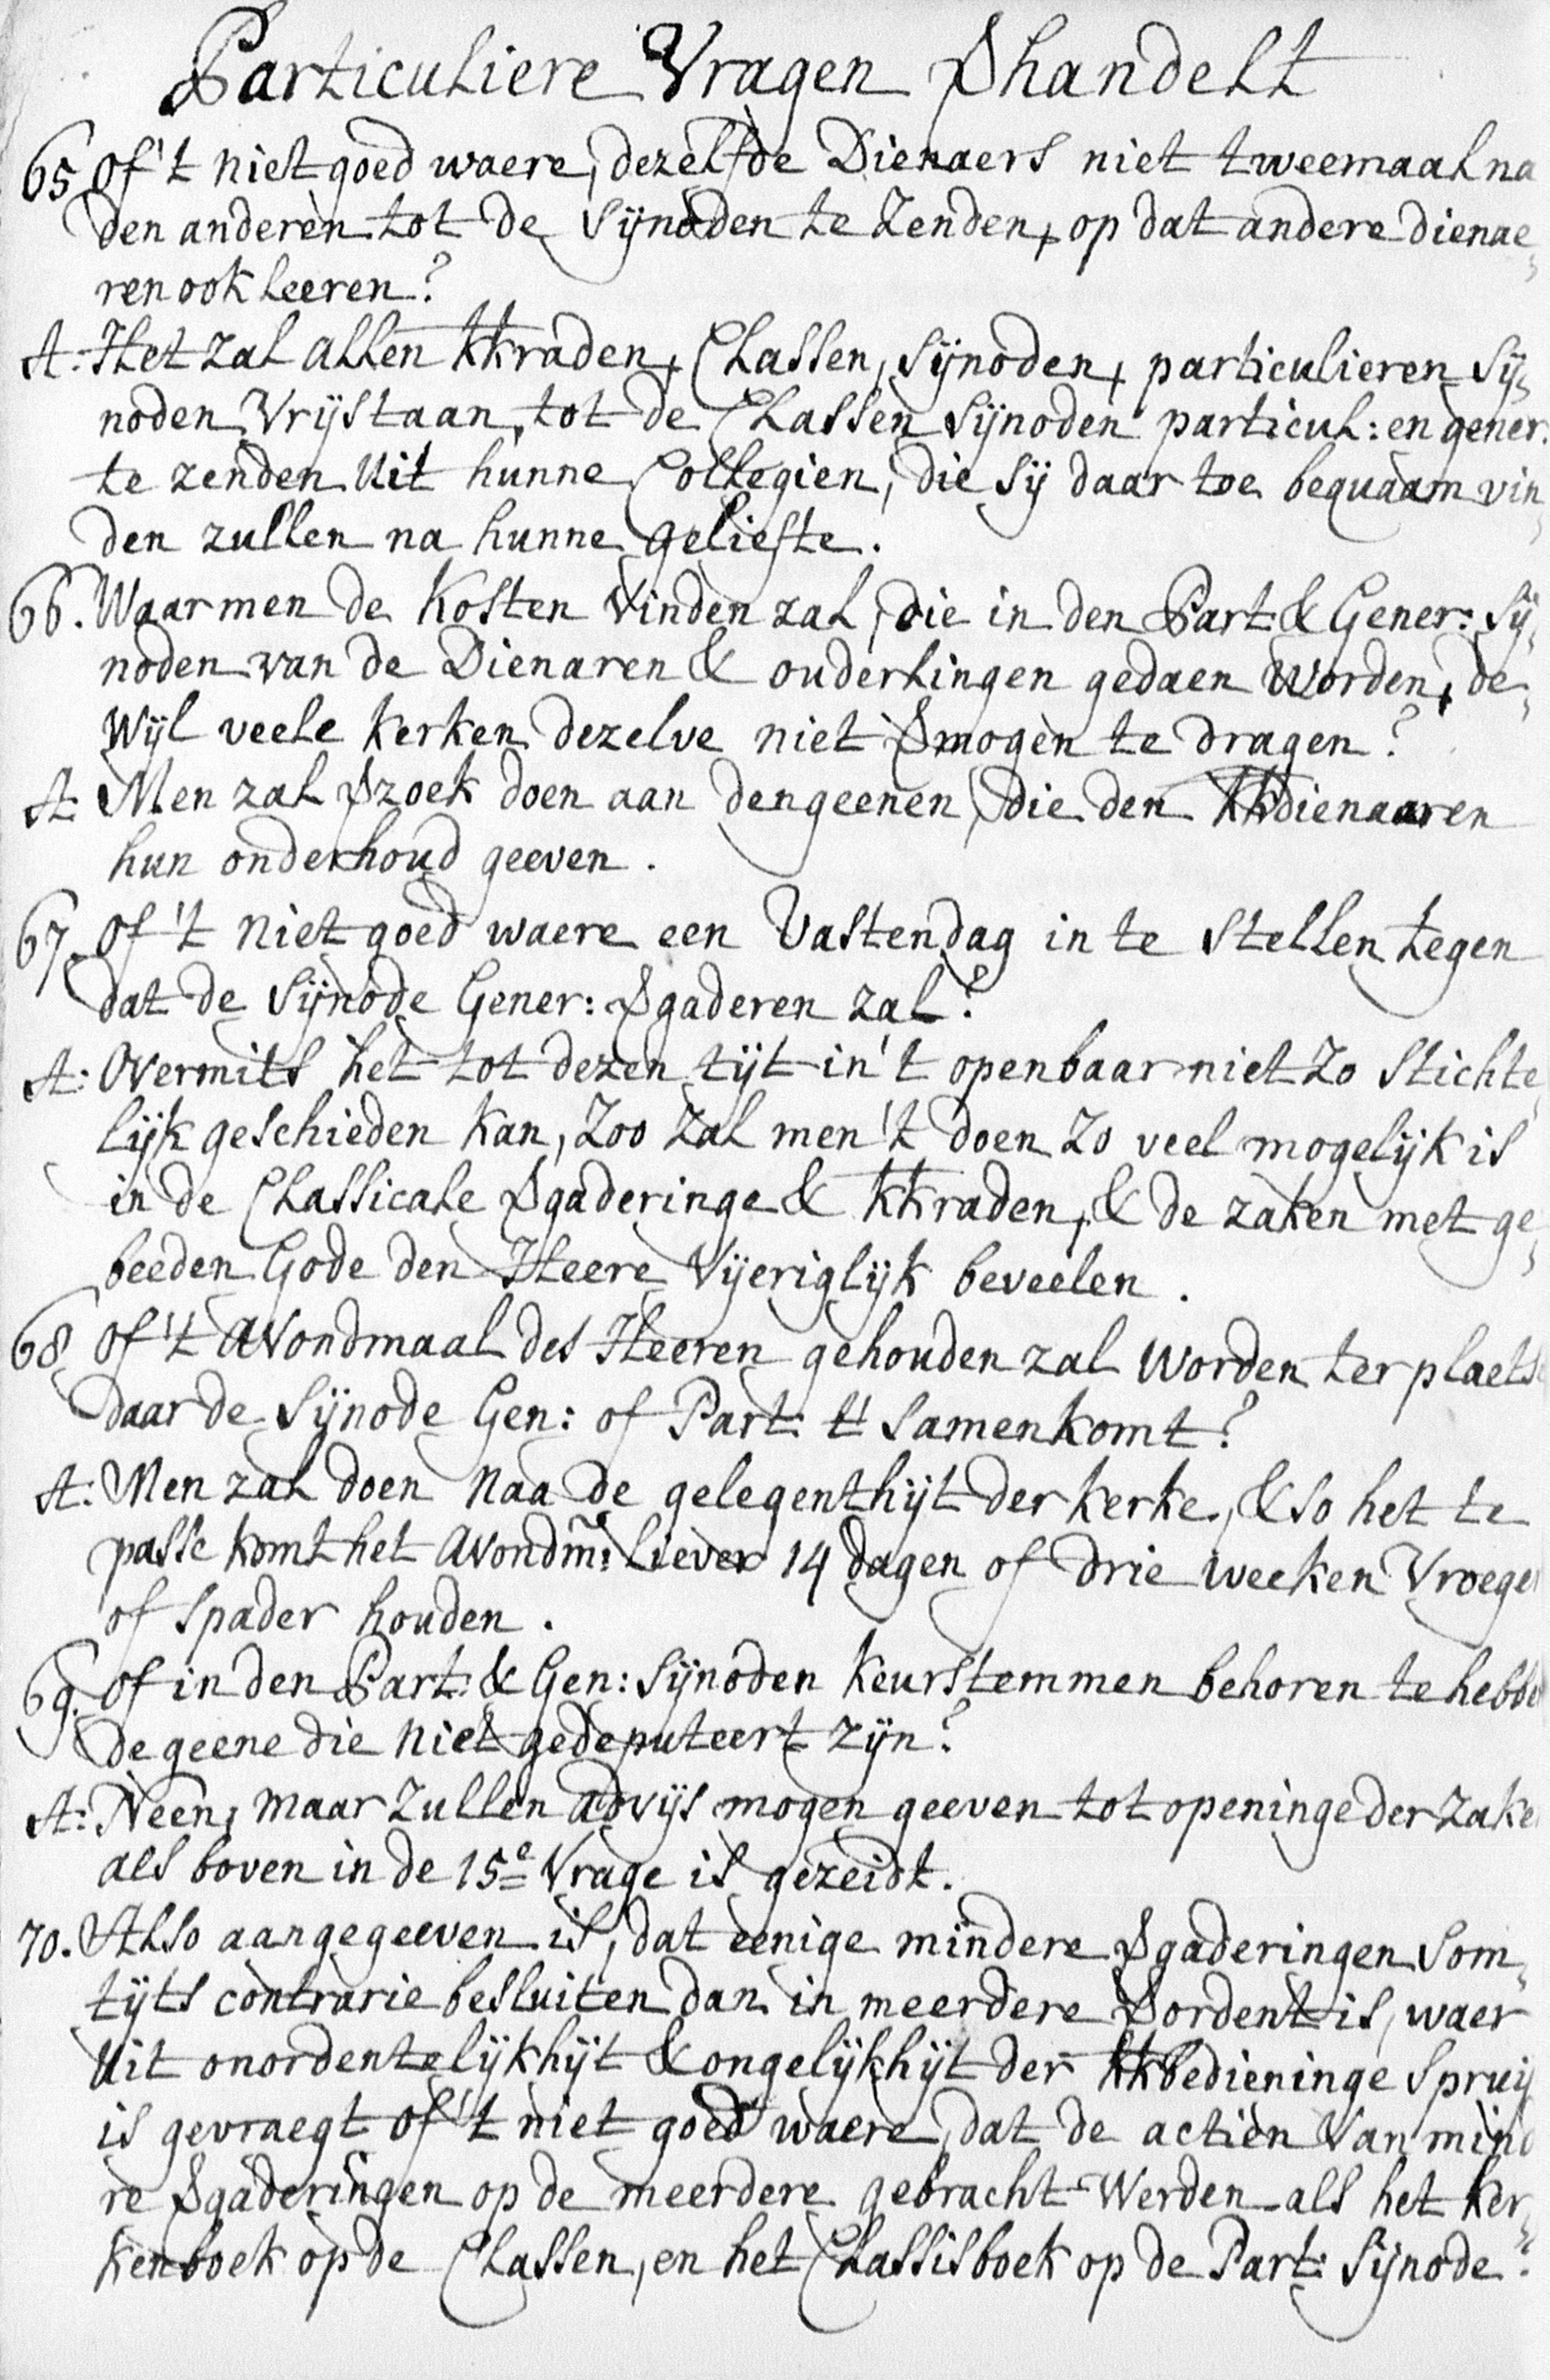 Particuliere Vragen Vhandelt
65 of 't niet goed waere, dezelfde Dienaers niet tweemaal na
den anderen tot de Sijnoden te Zenden, op dat andere dienae„
ren ook leeren?
A: Het zal allen kkraden, Classen, Sijnoden, particulieren Sij„
noden Vrijstaan, tot de Classen Sijnoden particul: en gener:
te zenden uit hunne Collegien, die Sij daar toe bequaam vin„
den zullen na hunne geliefte.
66. Waar men de Kosten Vinden zal, die in den Part: & Gener: Sij„
noden van de Dienaren & ouderlingen gedaen Worden, de„
Wijl veele kerken dezelve niet Vmogen te dragen?
A: Men zal Vzoek doen aan dengeenen, die den kkdienaaren
hun onderhoud geeven.
67. of 't niet goed waere een Vastendag in te Stellen tegen
dat de Sijnode Gener: Vgaderen zal?
A: Overmits het tot dezen tijt in 't openbaar niet Zo Stichte„
lijk geschieden kan, Zoo Zal men 't doen Zo veel mogelijk is
in de Classicale Vgaderinge & kkraden, & de zaken met ge„
beeden Gode den Heere Vijeriglijk beveelen.
68 of 't Avondmaal des Heeren gehouden zal Worden ter plaets
daar de Sijnode Gen: of Part: t' Samenkomt?
A: Men zal doen Naa de gelegenthijt der kerke, & so het te
passe komt het Avondm: Liever 14 dagen of drie weeken Vroege
of Spader houden.
69. of in den Part: & Gen: Sijnoden Keurstemmen behoren te hebbe
de geene die niet gedeputeert zijn?
A: Neen, maar Zullen advijs mogen geeven tot openinge der Zake
als boven in de 15e Vrage is gezeidt.
70. Also aangegeeven is, dat eenige mindere Vgaderingen Som„
tijts contrarie besluiten dan in meerdere Vordent is, waer
Uit onordentelijkhijt & ongelijkhijt der kkbedieninge Spruij
is gevraegt of 't niet goed waere, dat de actien Van mind
re Vgaderingen op de meerdere gebracht Werden als het ker„
kenboek op de Classen, en het Classisboek op de Part: Sijnode?